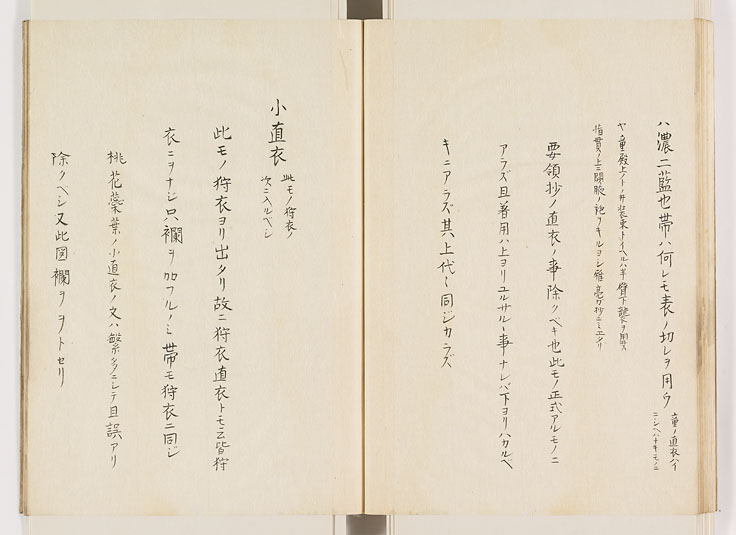 ハ濃二藍也帯ハ何レモ表ノ切レヲ用ウ
童ノ直衣ハイ
ニシヘハナキモノニ
ヤ童殿上ノトノ井装束トイヘルハ半臂下襲ヲ用ヒズ
指貫ノ上ニ闕腋ノ袍ヲキルヨシ雅亮抄ニミエタリ
要領抄ノ直衣ノ事除クベキ也此モノ正式アルモノニ
アラズ且着用ハ上ヨリユルサルヽ事ナレバ下ヨリハカルベ
キニアラズ其上代々同ジカラズ
小直衣
此モノ狩衣ノ
次ニ入ルベシ
此モノ狩衣ヨリ出タリ故ニ狩衣直衣トモ云皆狩
衣ニヲナジ只襴ヲ加フルノミ帯モ狩衣ニ同ジ
桃花蘂葉ノ小直衣ノ文ハ繁多ニシテ且誤アリ
除クベシ又此図襴ヲヲトセリ